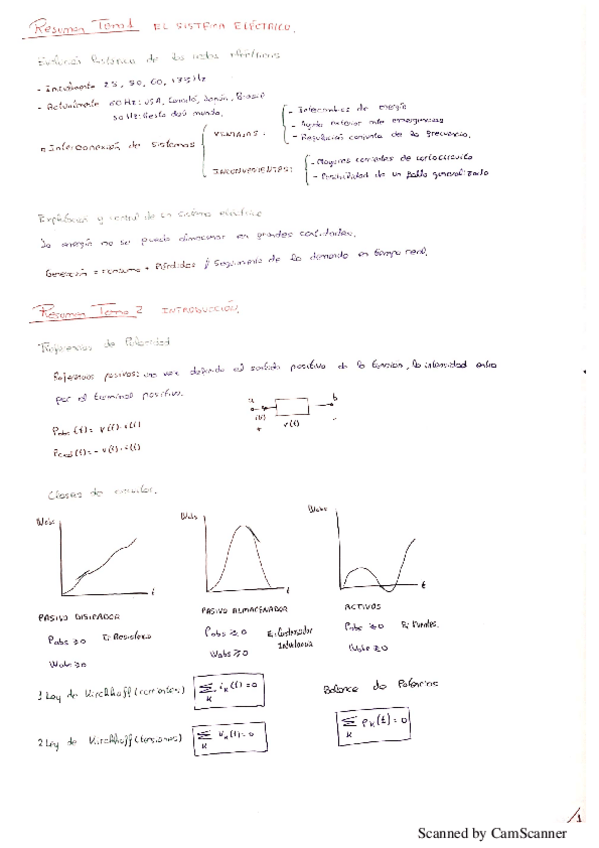 Resumen Tema 1 EL SISTEMA ELÉCTRICO.
Evolución histórica de las redes eléctricas
- Inicialmente 25, 50, 60, 133 Hz
- Actualmente 60 Hz: USA, Canadá, Japón, Brasil
50 Hz: Resto del mundo.
Interconexión de sistemas
VENTAJAS:
- Intercambios de energía
- Ayuda exterior ante emergencias
- Regulación conjunta de la frecuencia.
INCONVENIENTES:
- Mayores corrientes de cortocircuito
- Posibilidad de un fallo generalizado
Explotación y control de un sistema eléctrico
La energía no se puede almacenar en grandes cantidades.
Generación = consumo + Pérdidas Seguimiento de la demanda en tiempo real.
Resumen Tema 2 INTRODUCCIÓN.
Referencias de Polaridad
Referencias pasivas: una vez definido el sentido positivo de la tensión, la intensidad entra
por el terminal positivo.
a b
i(t)
+ v(t) -
Pabs(t) = v(t)·i(t)
Pced(t) = -v(t)·i(t)
Clases de circuitos.
Wabs Wabs Wabs
t t t
PASIVO DISIPADOR PASIVO ALMACENADOR ACTIVOS
Pabs ≥0 Ej: Resistencia
Wabs ≥0
Pabs ≷0 Ej: Condensador
Inductancia
Wabs ≥0
Pabs ≷0 Ej: Fuentes.
Wabs ≷0
1 Ley de Kirchhoff (corrientes) Σ iₖ(t)=0
K
Balance de Potencias
2 Ley de Kirchhoff (tensiones) Σ vₖ(t)=0
K
Σ pₖ(t)=0
K
/1
Scanned by CamScanner